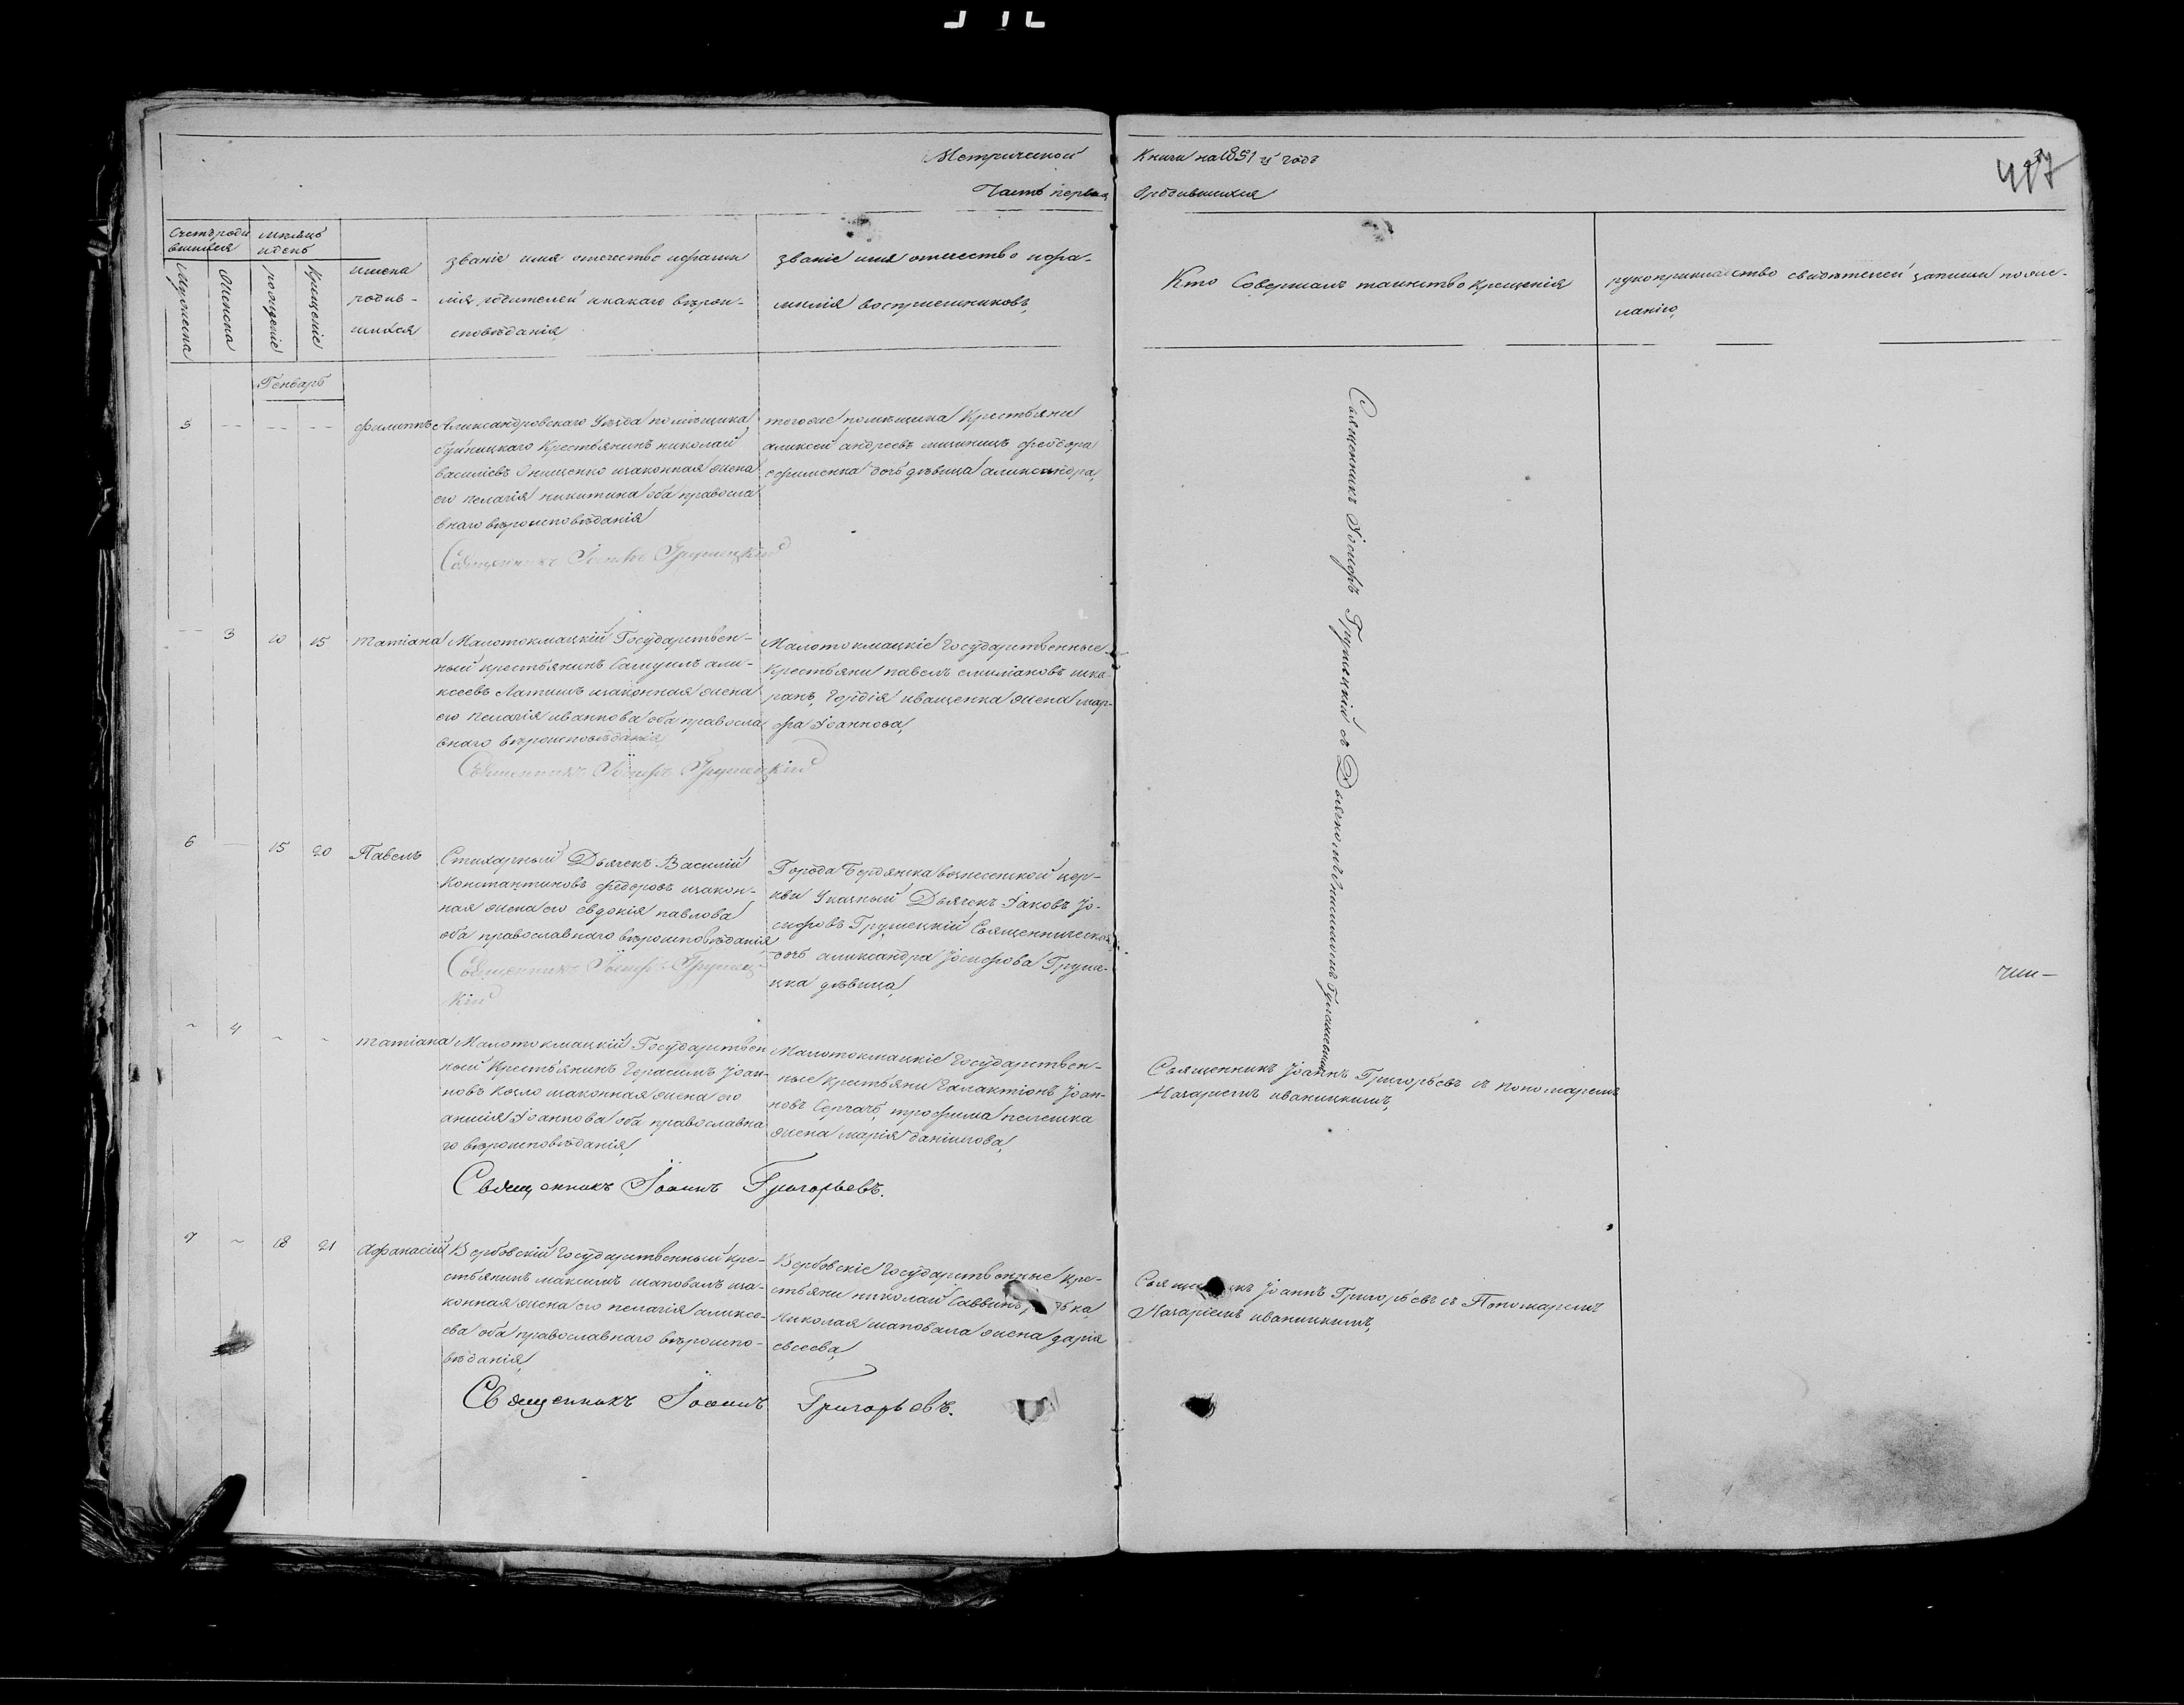 Метрической
Книги на 1851 й годъ
Часть первая
О родившихся
417
Счетъ роди
вшихся
мѣсяцъ
и день
Мужеска
Женска
рожденіе
Крещеніе
имена
родив-
шихся
званіе имя отечество и фами
лія родителей и какаго вѣрои-
споведанія,
званіе имя отечество и фа-
милія воспріемниковъ,
Кто Совершалъ таинство крещенія
рукоприкладство свидѣтелей записи по же-
ланію,
Генварь
5
филиппъ
Александровскаго Уѣзда помѣщика
Крестьянинъ николай
василіевъ Онищенко изаконная жена
его пелагія никитина оба правосла
внаго вѣроисповѣданія
Священникъ Іосифъ Грушецкій
тогоже помѣщика Крестьяни
алексей андреевъ феодора
ефименка дочь дѣвица александра,
3 10 15
татіана
Малотокмацкій Государствен-
ный крестьянинъ Самуилъ але-
ксеевъ Латишъ изаконная жена
его пелагія иванова оба правосла
внаго вѣроисповѣданія,
Священникъ Іосифъ Грушецкій
Малотокмацкіе государственные
Крестьяни павелъ емиліановъ шка-
ранъ, гордія иващенка жена мар-
фа Іоаннова,
Священникъ Іосифъ Грушецкій съ Дьячкомъ
6 15 20
Павелъ
Стихарный Дьячекъ Василій
Константиновъ федоровъ изакон-
ная жена его евдокія павлова
оба православнаго вѣроисповѣданія
Священникъ Іосифъ Грушец-
кій
Города Бердянска вознесенской цер-
кви Указный Дьячекъ Іаковъ Іо-
сифовъ Грушецкій Священническая
дочь александра Іосифова Груше-
цка дѣвица,
4
татіана
Малотокмацкій Государствен
ный Крестьянинъ Герасимъ Іоан-
новъ Козло изаконная жена его
анисія Іоаннова оба православна
го вѣроисповѣданія,
Священникъ Іоаннъ Григорьевъ.
Малотокмацкіе государствен-
ные крестьяни галактіонъ Іоан-
новъ Сергачъ, трофима пелешка
жена марія даніилова,
Священникъ Іоаннъ Григорьевъ съ пономаремъ
Назаріемъ иваницкимъ,
7 18 21
Афанасій
Вербовскій государственный кре-
стьянинъ максимъ шаповалъ иза-
конная жена его пелагія алексе-
ева оба православнаго вѣроиспо-
вѣданія,
Священникъ Іоаннъ Григорьевъ.
Вербовскіе государственные кре-
стьяни николай Саввинъ
николая шаповала жена дарія
евсеева,
Священникъ Іоаннъ Григорьевъ съ Пономаремъ
Назаріемъ иваницкимъ,